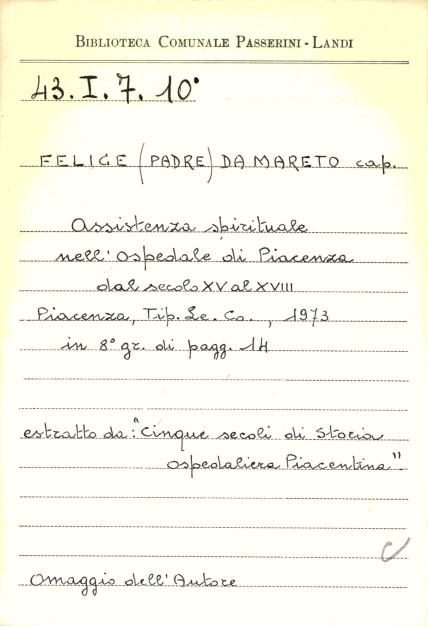 BIBLIOTECA COMUNALE PASSERINI - LANDI
43. I. 7. 10°
FELICE (PADRE) DA MARETO cap.
Assistenza spirituale
nell'Ospedale di Piacenza
dal secolo XV al XVIII
Piacenza, Tip. Le. Co. , 1973
in 8° gr. di pagg. 14
estratto da: "Cinque secoli di Storia
Ospedaliera Piacentina".
Omaggio dell'Autore